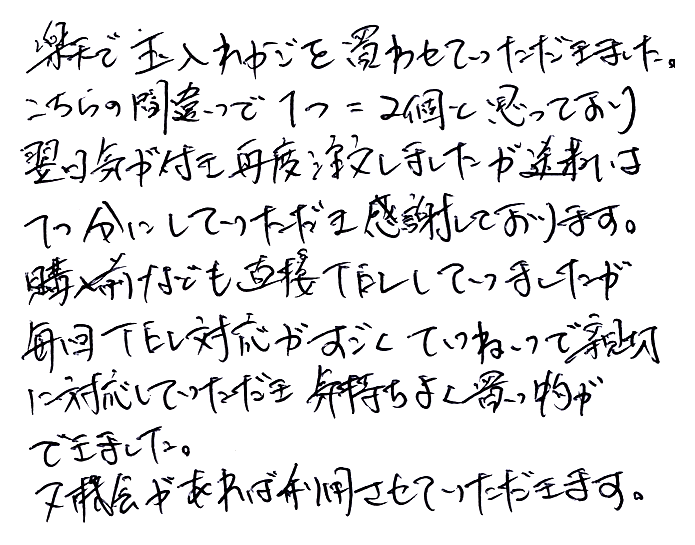 楽天で玉入れかごを買わせていただきました。
こちらの間違いで1つ=2個と思っており
翌日気が付き再度注文しましたが送料は
1つ分にしていただき感謝しております。
購入前などでも直接TELしていましたが
毎回TEL対応がすごくていねいで親切
に対応していただき気持ちよく買い物が
できました。
又機会があれば利用させていただきます。